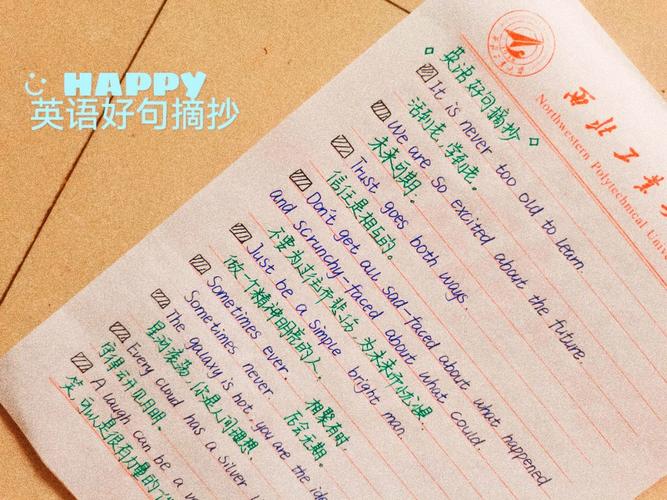 HAPPY
英语好句摘抄
西北工业
Northwestern Polytechnical Univ
英语好句摘抄
It is never too old to learn.
活到老,学到老。
We are so excited about the future.
未来可期。
Trust goes both ways.
信任是相互的。
Don't get all sad-faced about what happened
and scrunchy-faced about what could.
不要为过往而悲伤,为未来而忧愁。
Just be a simple bright man.
做一个精神明亮的人。
Sometimes ever.
Sometimes never.
相聚有时,
后会无期。
The galaxy is hot, you are the ide
星河滚荡,你是人间理想。
Every cloud has a silver l
守得云开见月明。
A laugh can be a
笑,可以是很有力量的